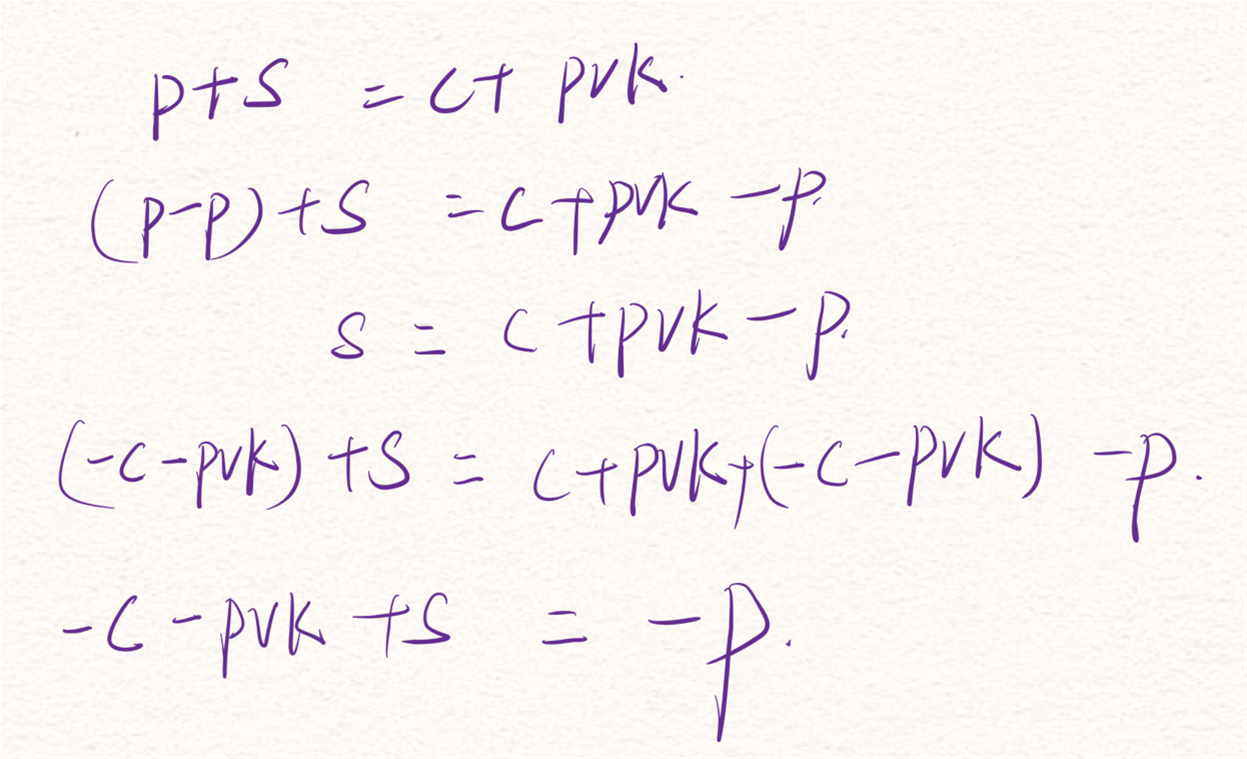 p+s = c+ pvk.
(p-p)+s = c+pvk -p.
s = c+pvk-p.
(-c-pvk)+s = c+pvk+(-c-pvk) -p.
-c-pvk+s = -p.